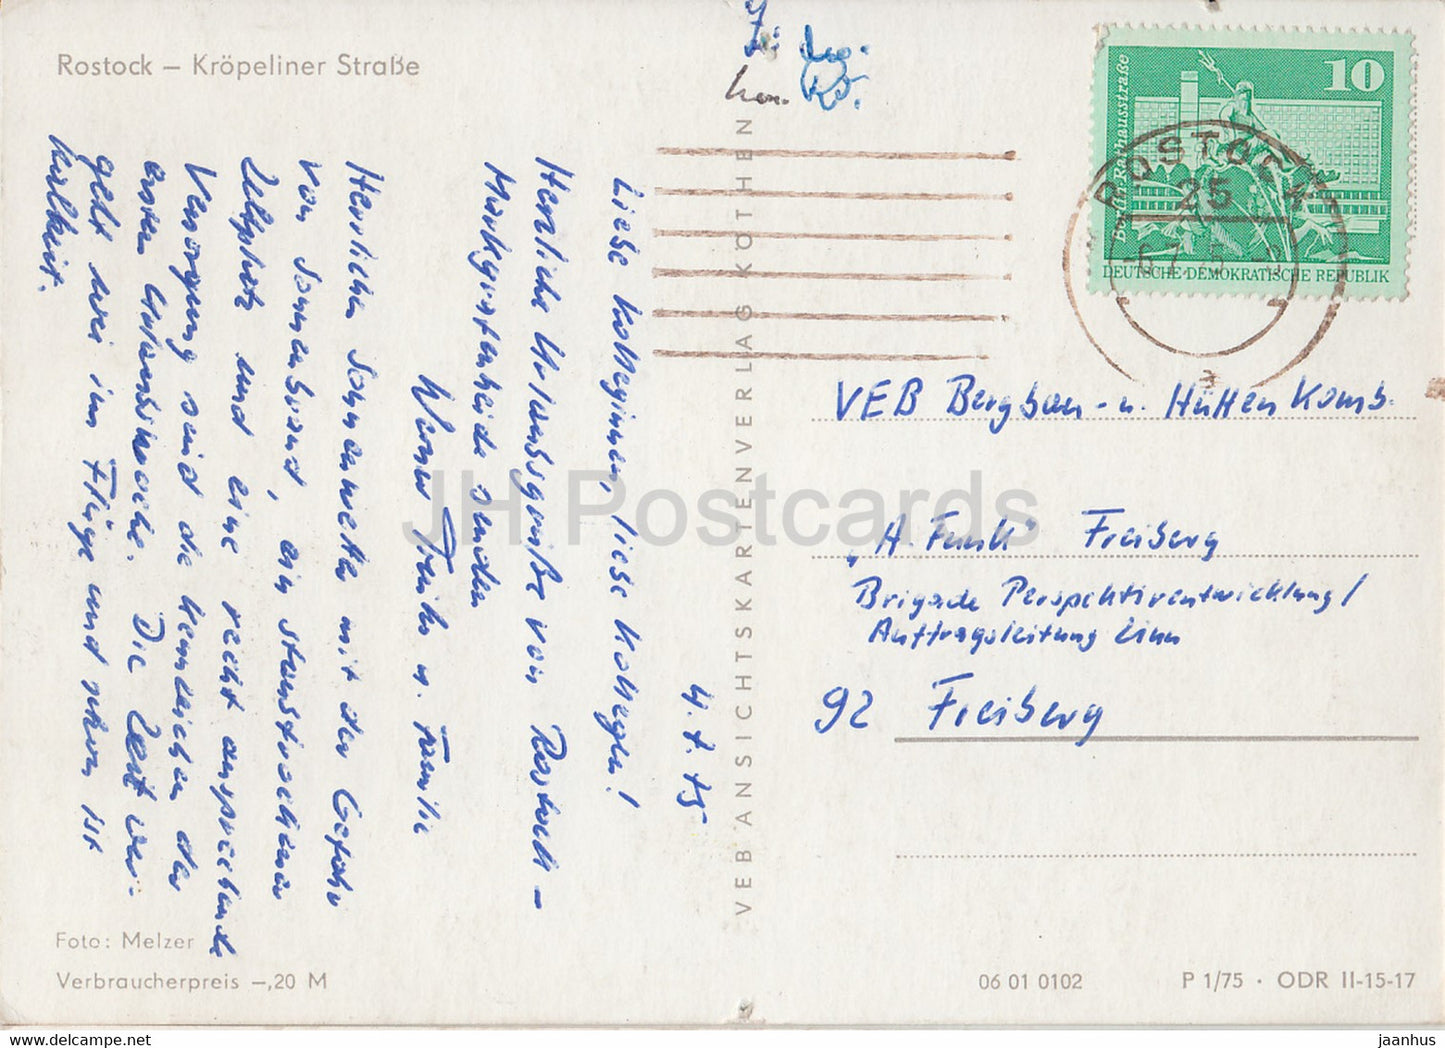 Rostock – Kröpeliner Straße
4.7.75
Liebe Kolleginnen, liebe Kollegen!
Herzliche Urlaubsgrüße von Rostock-
Markgrafenheide senden
Werner u. Familie
Herrliches Sommerwetter mit der Gefahr
von Sonnenbrand, ein
Zeltplatz und eine recht ansprechende
Versorgung sind die Kennzeichen der
ersten Urlaubswoche. Die Zeit ver-
geht wie im Fluge und schon ist
Halbzeit.
Foto: Melzer
Verbraucherpreis –,20 M
VEB ANSICHTSKARTENVERLAG KÖTHEN
10
Rathausstraße
DEUTSCHE DEMOKRATISCHE REPUBLIK
ROSTOCK
25
VEB Bergbau- u. Hütten Komb.
„A. Funk" Freiberg
Brigade Perspektiventwicklung/
Auftragsleitung Zinn
92 Freiberg
06 01 0102
P 1/75 · ODR II-15-17
JH Postcards
jaanhus
www.delcampe.net